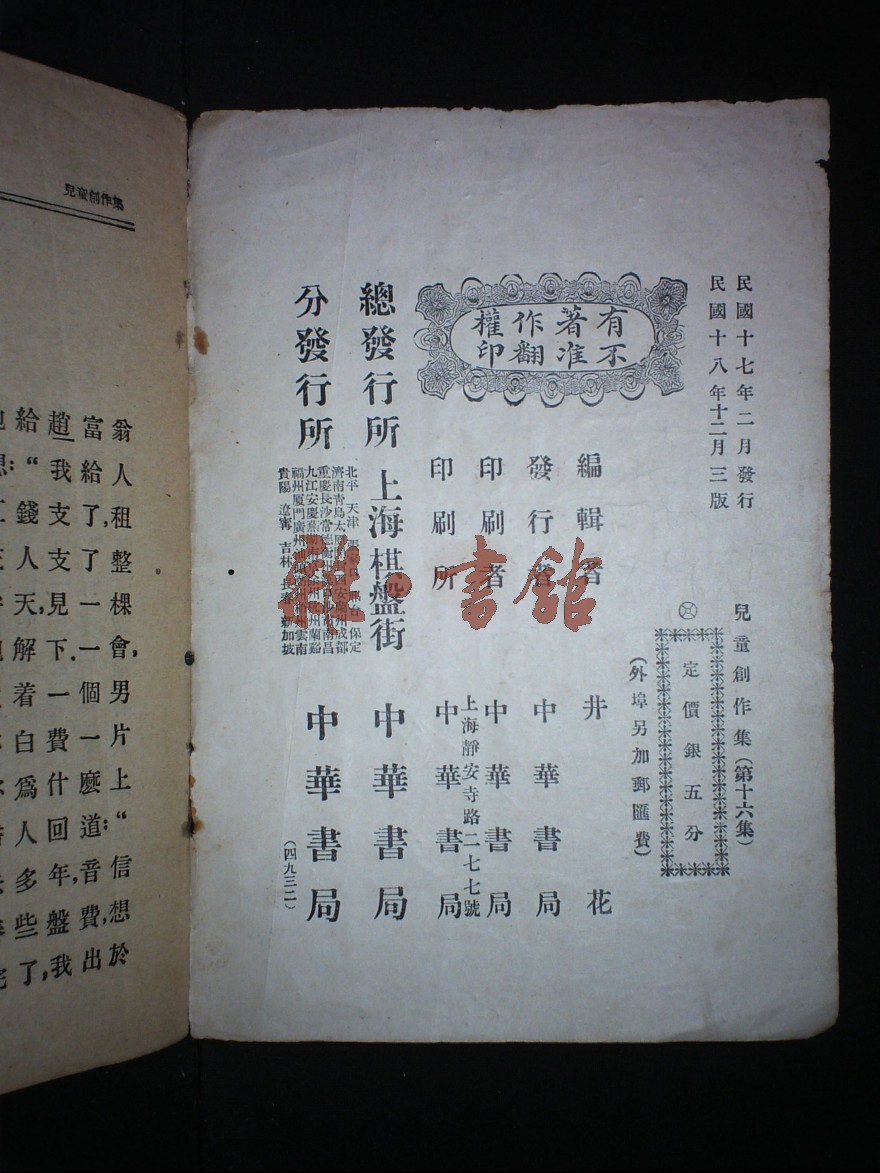 民國十七年二月發行
民國十八年十二月三版
兒童創作集(第十六集)
定價銀五分
(外埠另加郵匯費)
有著作權
不准翻印
編輯者 井花
發行者 中華書局
印刷者 中華書局
上海靜安寺路二七七號
印刷所 中華書局
總發行所 上海棋盤街 中華書局
分發行所
北平 天津 保定
濟南青島太原 西安蘭州成都
重慶長沙常德衡州 南昌
九江安慶蕪湖南京 杭州蘭谿
福州厦門廣州 雲南
貴陽 遼寧 吉林 長春 新加坡
中華書局
(四九三二)
雜·書館
兒童創作集
翁人租整棵會,男片上“信想於
富給了,了一一個一麽道:音費,出
趙一我支支見下.一費什回年,盤我
給“錢人天,解着白爲人多些了,